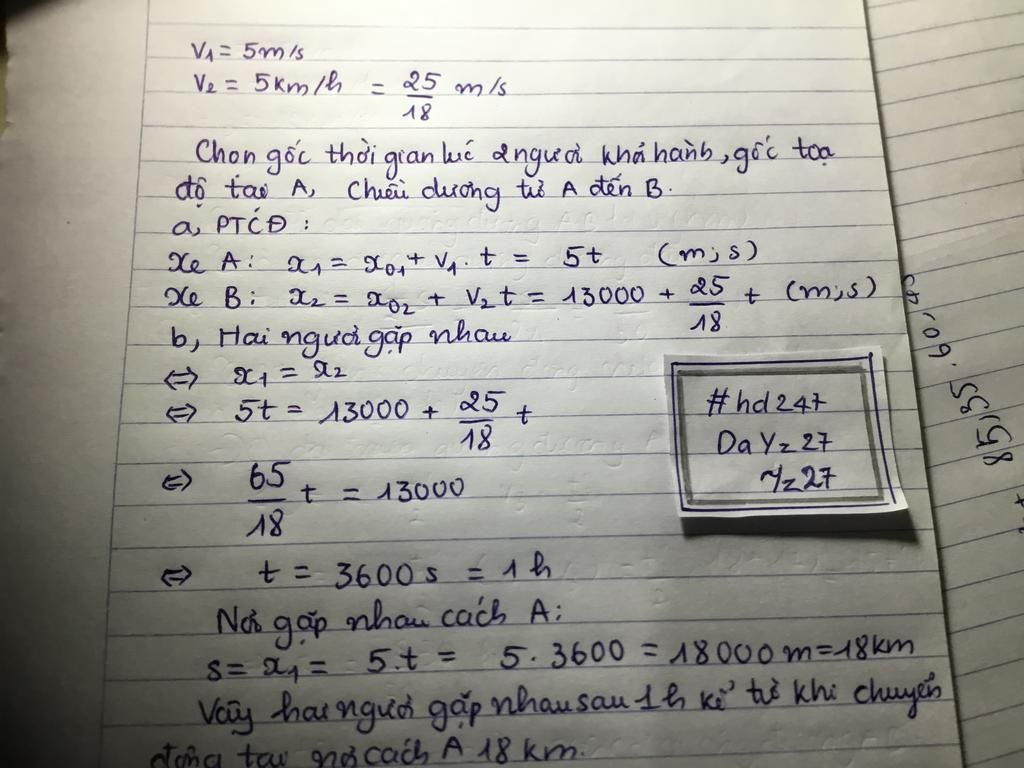 V₁ = 5m/s
V₂ = 5km/h = 25/18 m/s
Chọn gốc thời gian lúc 2 người khởi hành, gốc toạ
độ tại A, chiều dương từ A đến B.
a, PTCĐ:
Xe A: x₁ = x₀₁ + v₁.t = 5t (m;s)
Xe B: x₂ = x₀₂ + v₂t = 13000 + 25/18 t (m;s)
b, Hai người gặp nhau
⇔ x₁ = x₂
⇔ 5t = 13000 + 25/18 t
⇔ 65/18 t = 13000
⇔ t = 3600s = 1h
Nơi gặp nhau cách A:
s = x₁ = 5.t = 5.3600 = 18000m = 18km
Vậy hai người gặp nhau sau 1h kể từ khi chuyển
động tại nơi cách A 18km.
#hd247
DaYz27
Yz27